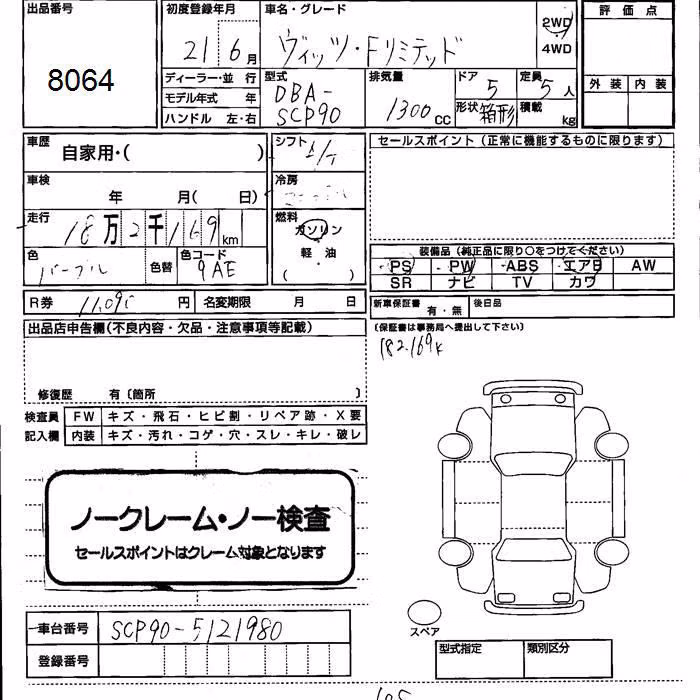 出品番号
8064
初度登録年月
21 6月
車名・グレード
ヴィッツ・Fリミテッド
2WD
4WD
評価点
外装 内装
ディーラー・並行
モデル年式 年
ハンドル 左・右
型式
DBA-
SCP90
排気量
1300cc
ドア 5
形状 箱形
定員 5人
積載 kg
車歴
自家用・( )
車検
年 月( 日)
走行
18万2千169km
色
パープル
色替
色コード
9AE
シフト
A/T
冷房
燃料
ガソリン
軽・油
( )
セールスポイント(正常に機能するものに限ります)
装備品(純正品に限り○をつけてください)
PS PW ABS エアB AW
SR ナビ TV カワ
R券 11,090円
名変期限 月 日
新車保証書 有・無
後日品
(保証書は事務局へ提出して下さい)
182.169K
出品店申告欄(不良内容・欠品・注意事項等記載)
修復歴 有〔箇所 〕
検査員記入欄
FW キズ・飛石・ヒビ割・リペア跡・X要
内装 キズ・汚れ・コゲ・穴・スレ・キレ・破レ
ノークレーム・ノー検査
セールスポイントはクレーム対象となります
車台番号 SCP90-5121980
登録番号
スペア
型式指定 類別区分